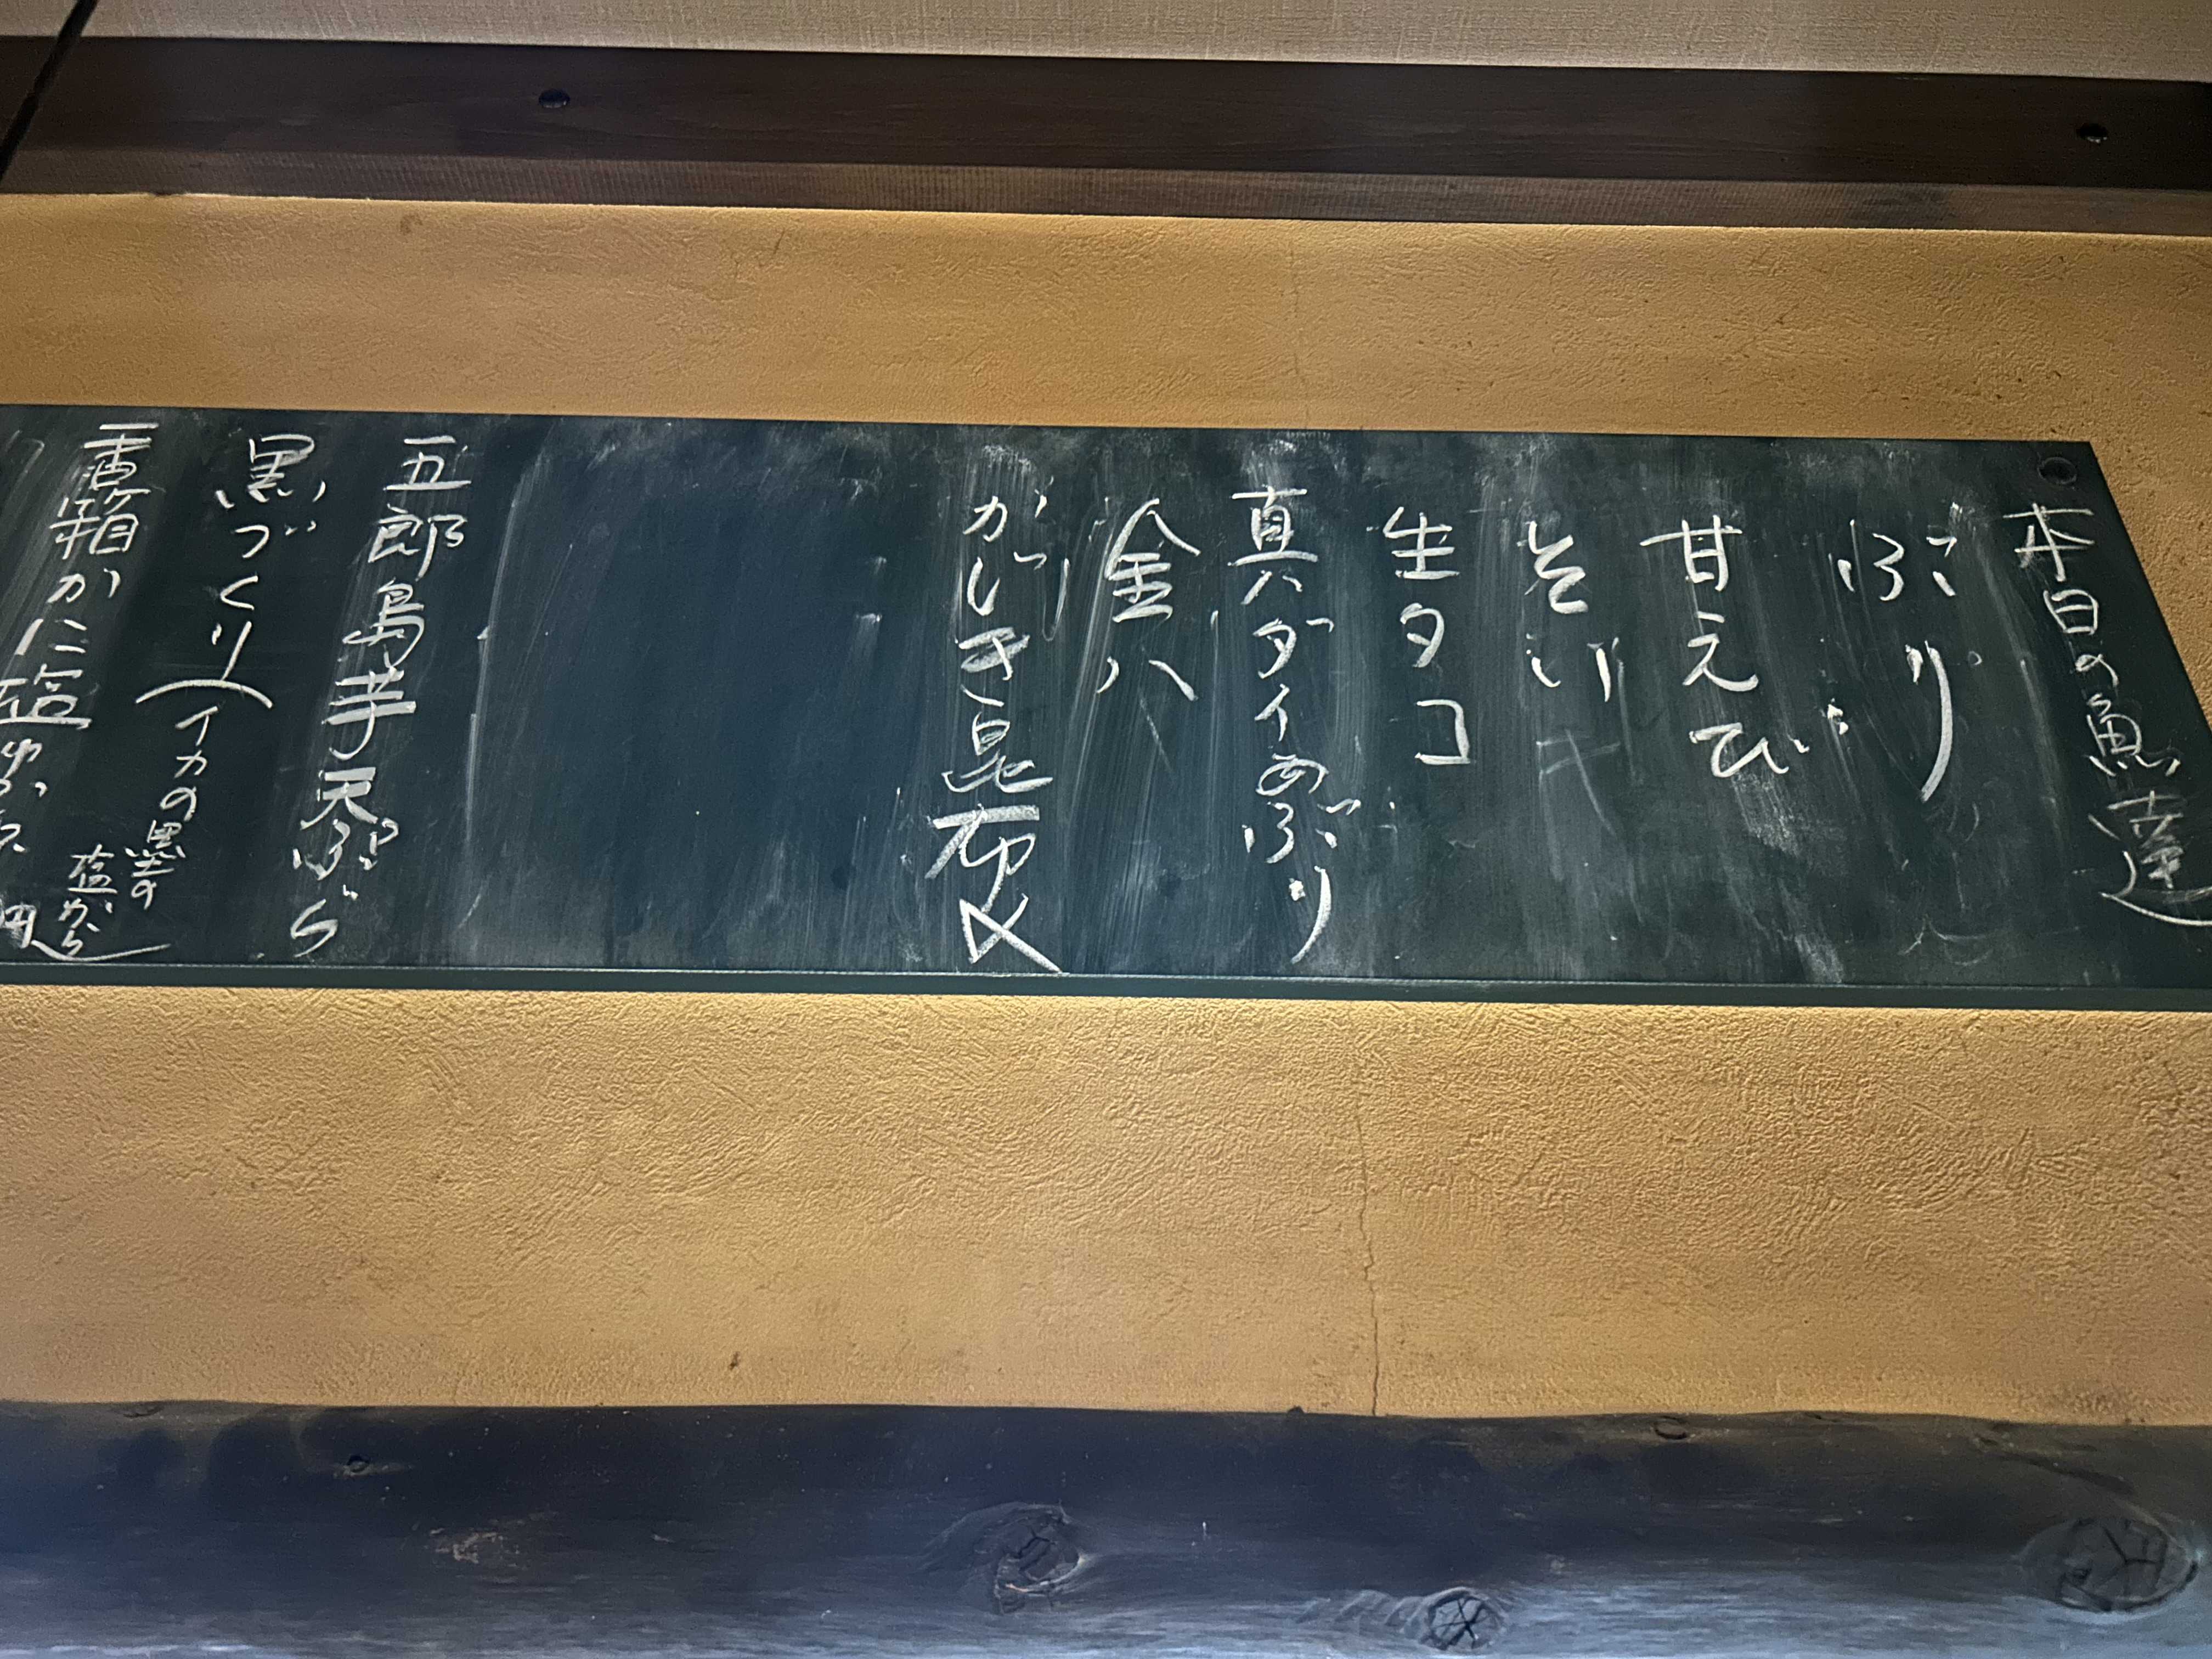 本日の魚達
ぶり
甘えび
そい
生タコ
真ダイあぶり
金八
がじき昆布〆
五郎島芋天ぷら
黒づくり(イカの黒の
塩から)
香箱かに塩ゆで